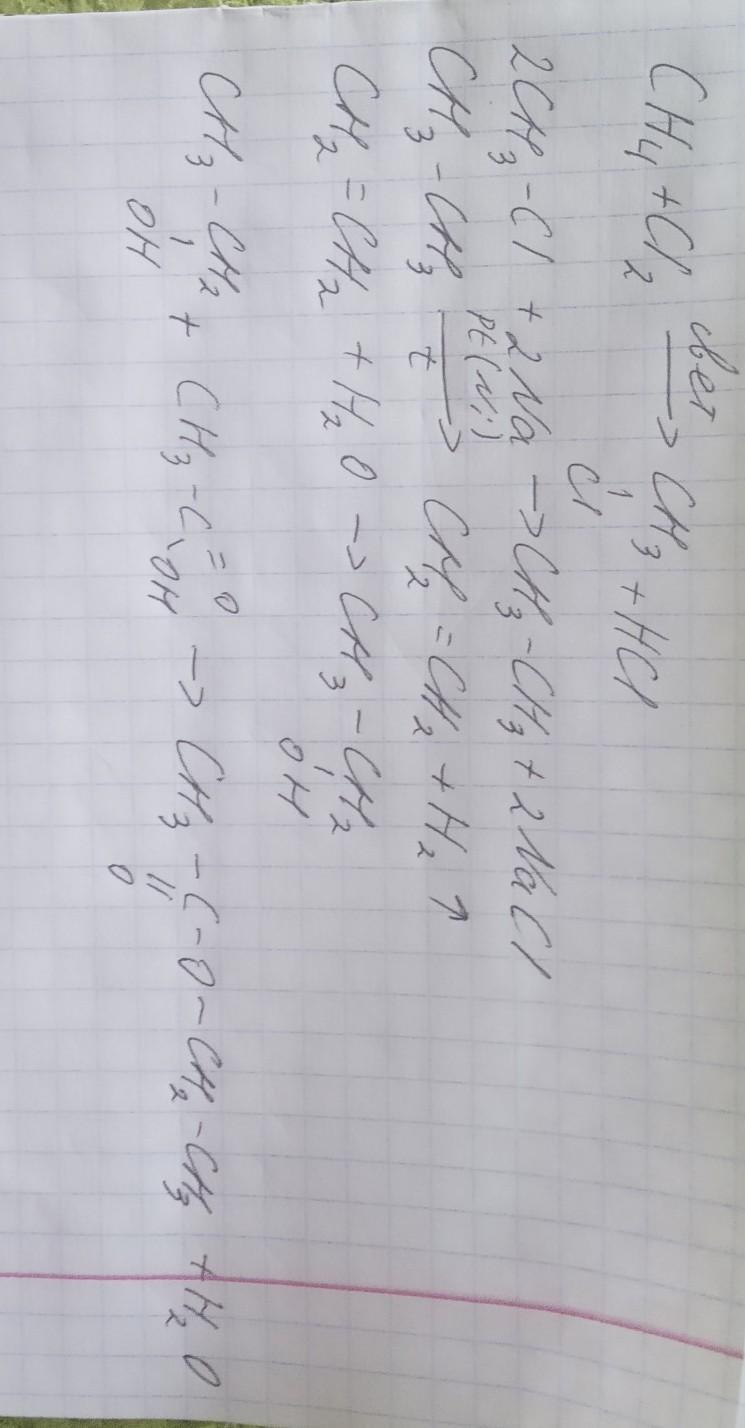 CH₄ + Cl₂ свет → CH₃ + HCl
Cl
2CH₃ - Cl + 2Na → CH₃ - CH₃ + 2NaCl
Pt(Ni)
CH₃ - CH₃ → CH₂ = CH₂ + H₂ ↑
t
CH₂ = CH₂ + H₂O → CH₃ - CH₂
OH
CH₃ - CH₂ + CH₃ - C = O → CH₃ - C - O - CH₂ - CH₃ + H₂O
OH OH O